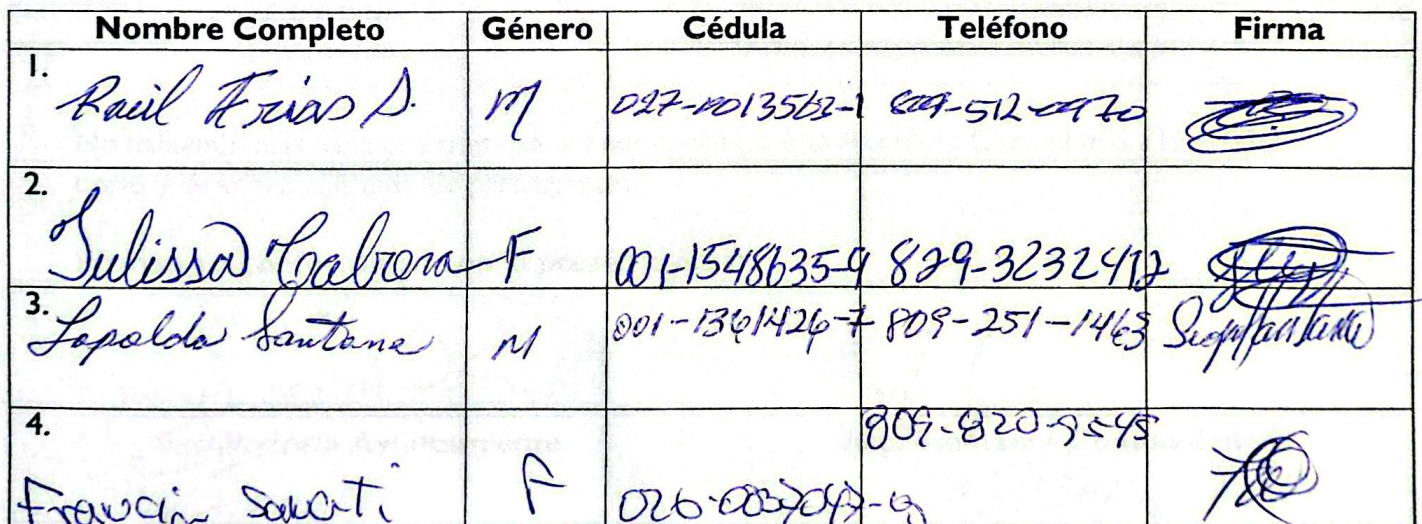 Nombre Completo Género Cédula Teléfono Firma
1. Raúl Arias D. M 027-0013563-1 809-512-0970
2. Julissa Cabrera F 001-1548635-9 829-3232412
3. Lopoldo Santana M 001-1361426-7 809-251-1463
4. 809-820-9545
F 026-0037047-9